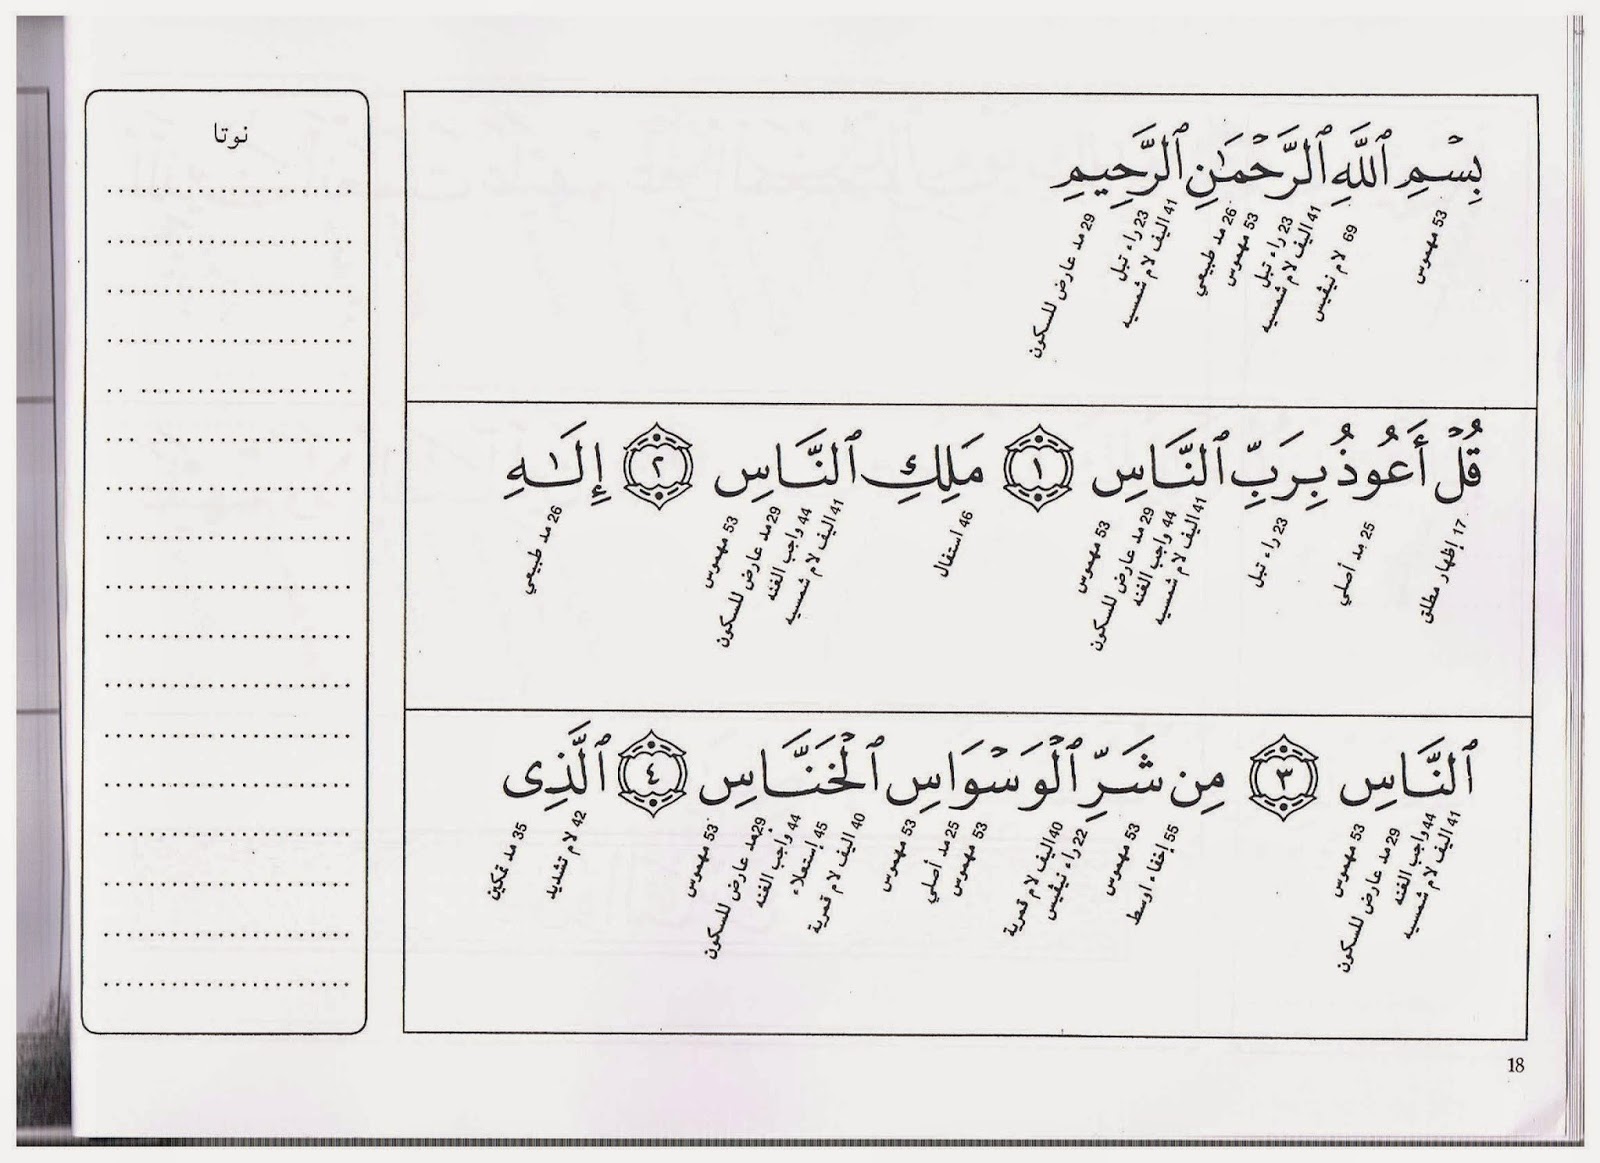 بِسْمِ ٱللَّهِ ٱلرَّحْمَـٰنِ ٱلرَّحِيمِ
53 مهموس
69 لام نيڤيس
41 اليف لام شمسيه
23 راء تبل
53 مهموس
26 مد طبيعي
41 اليف لام شمسيه
23 راء تبل
29 مد عارض للسكون
قُلْ أَعُوذُ بِرَبِّ ٱلنَّاسِ ١ مَلِكِ ٱلنَّاسِ ٢ إِلَـٰهِ
17 إظهار مطلق
25 مد أصلي
23 راء تبل
41 اليف لام شمسيه
44 واجب الغنه
29 مد عارض للسكون
53 مهموس
46 استفال
41 اليف لام شمسيه
44 واجب الغنه
29 مد عارض للسكون
53 مهموس
26 مد طبيعي
ٱلنَّاسِ ٣ مِن شَرِّ ٱلْوَسْوَاسِ ٱلْخَنَّاسِ ٤ ٱلَّذِى
41 اليف لام شمسيه
44 واجب الغنه
29 مد عارض للسكون
53 مهموس
55 إخفاء اوسط
53 مهموس
22 راء نيڤيس
40 اليف لام قمرية
53 مهموس
25 مد أصلي
53 مهموس
40 اليف لام قمرية
45 إستعلاء
44 واجب الغنه
29 مد عارض للسكون
53 مهموس
42 لام تشديد
35 مد تمكين
نوتا
18